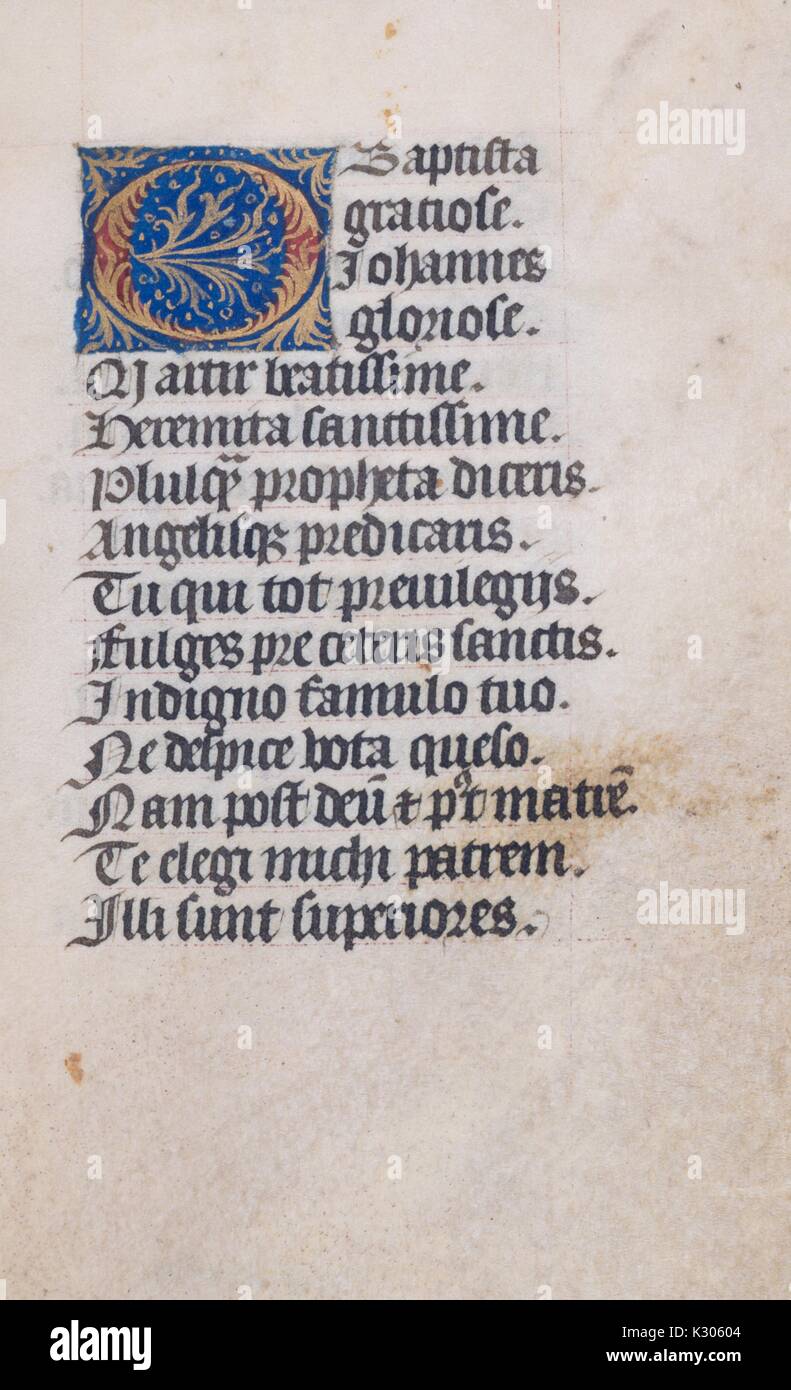 O Baptista
graciose.
Johannes
gloriose.
Martir beatissime.
Heremita sanctissime.
Plusq̃ propheta diceris.
Angelusqꝫ predicaris.
Tu qui tot preuilegijs.
Fulges pre ceteris sanctis.
Indigno famulo tuo.
Ne despice vota queso.
Nam post deũ ⁊ matrẽ.
Te elegi michi patrem.
Illi sunt superiores.
alamy
www.alamy.com
Image ID: K30604